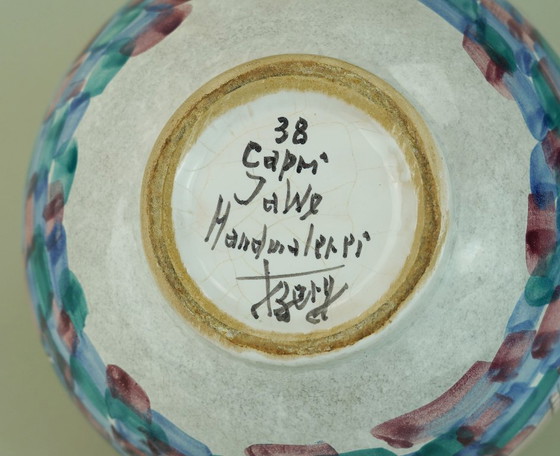 38
Capri
Jawe
Handmalerei
Berg